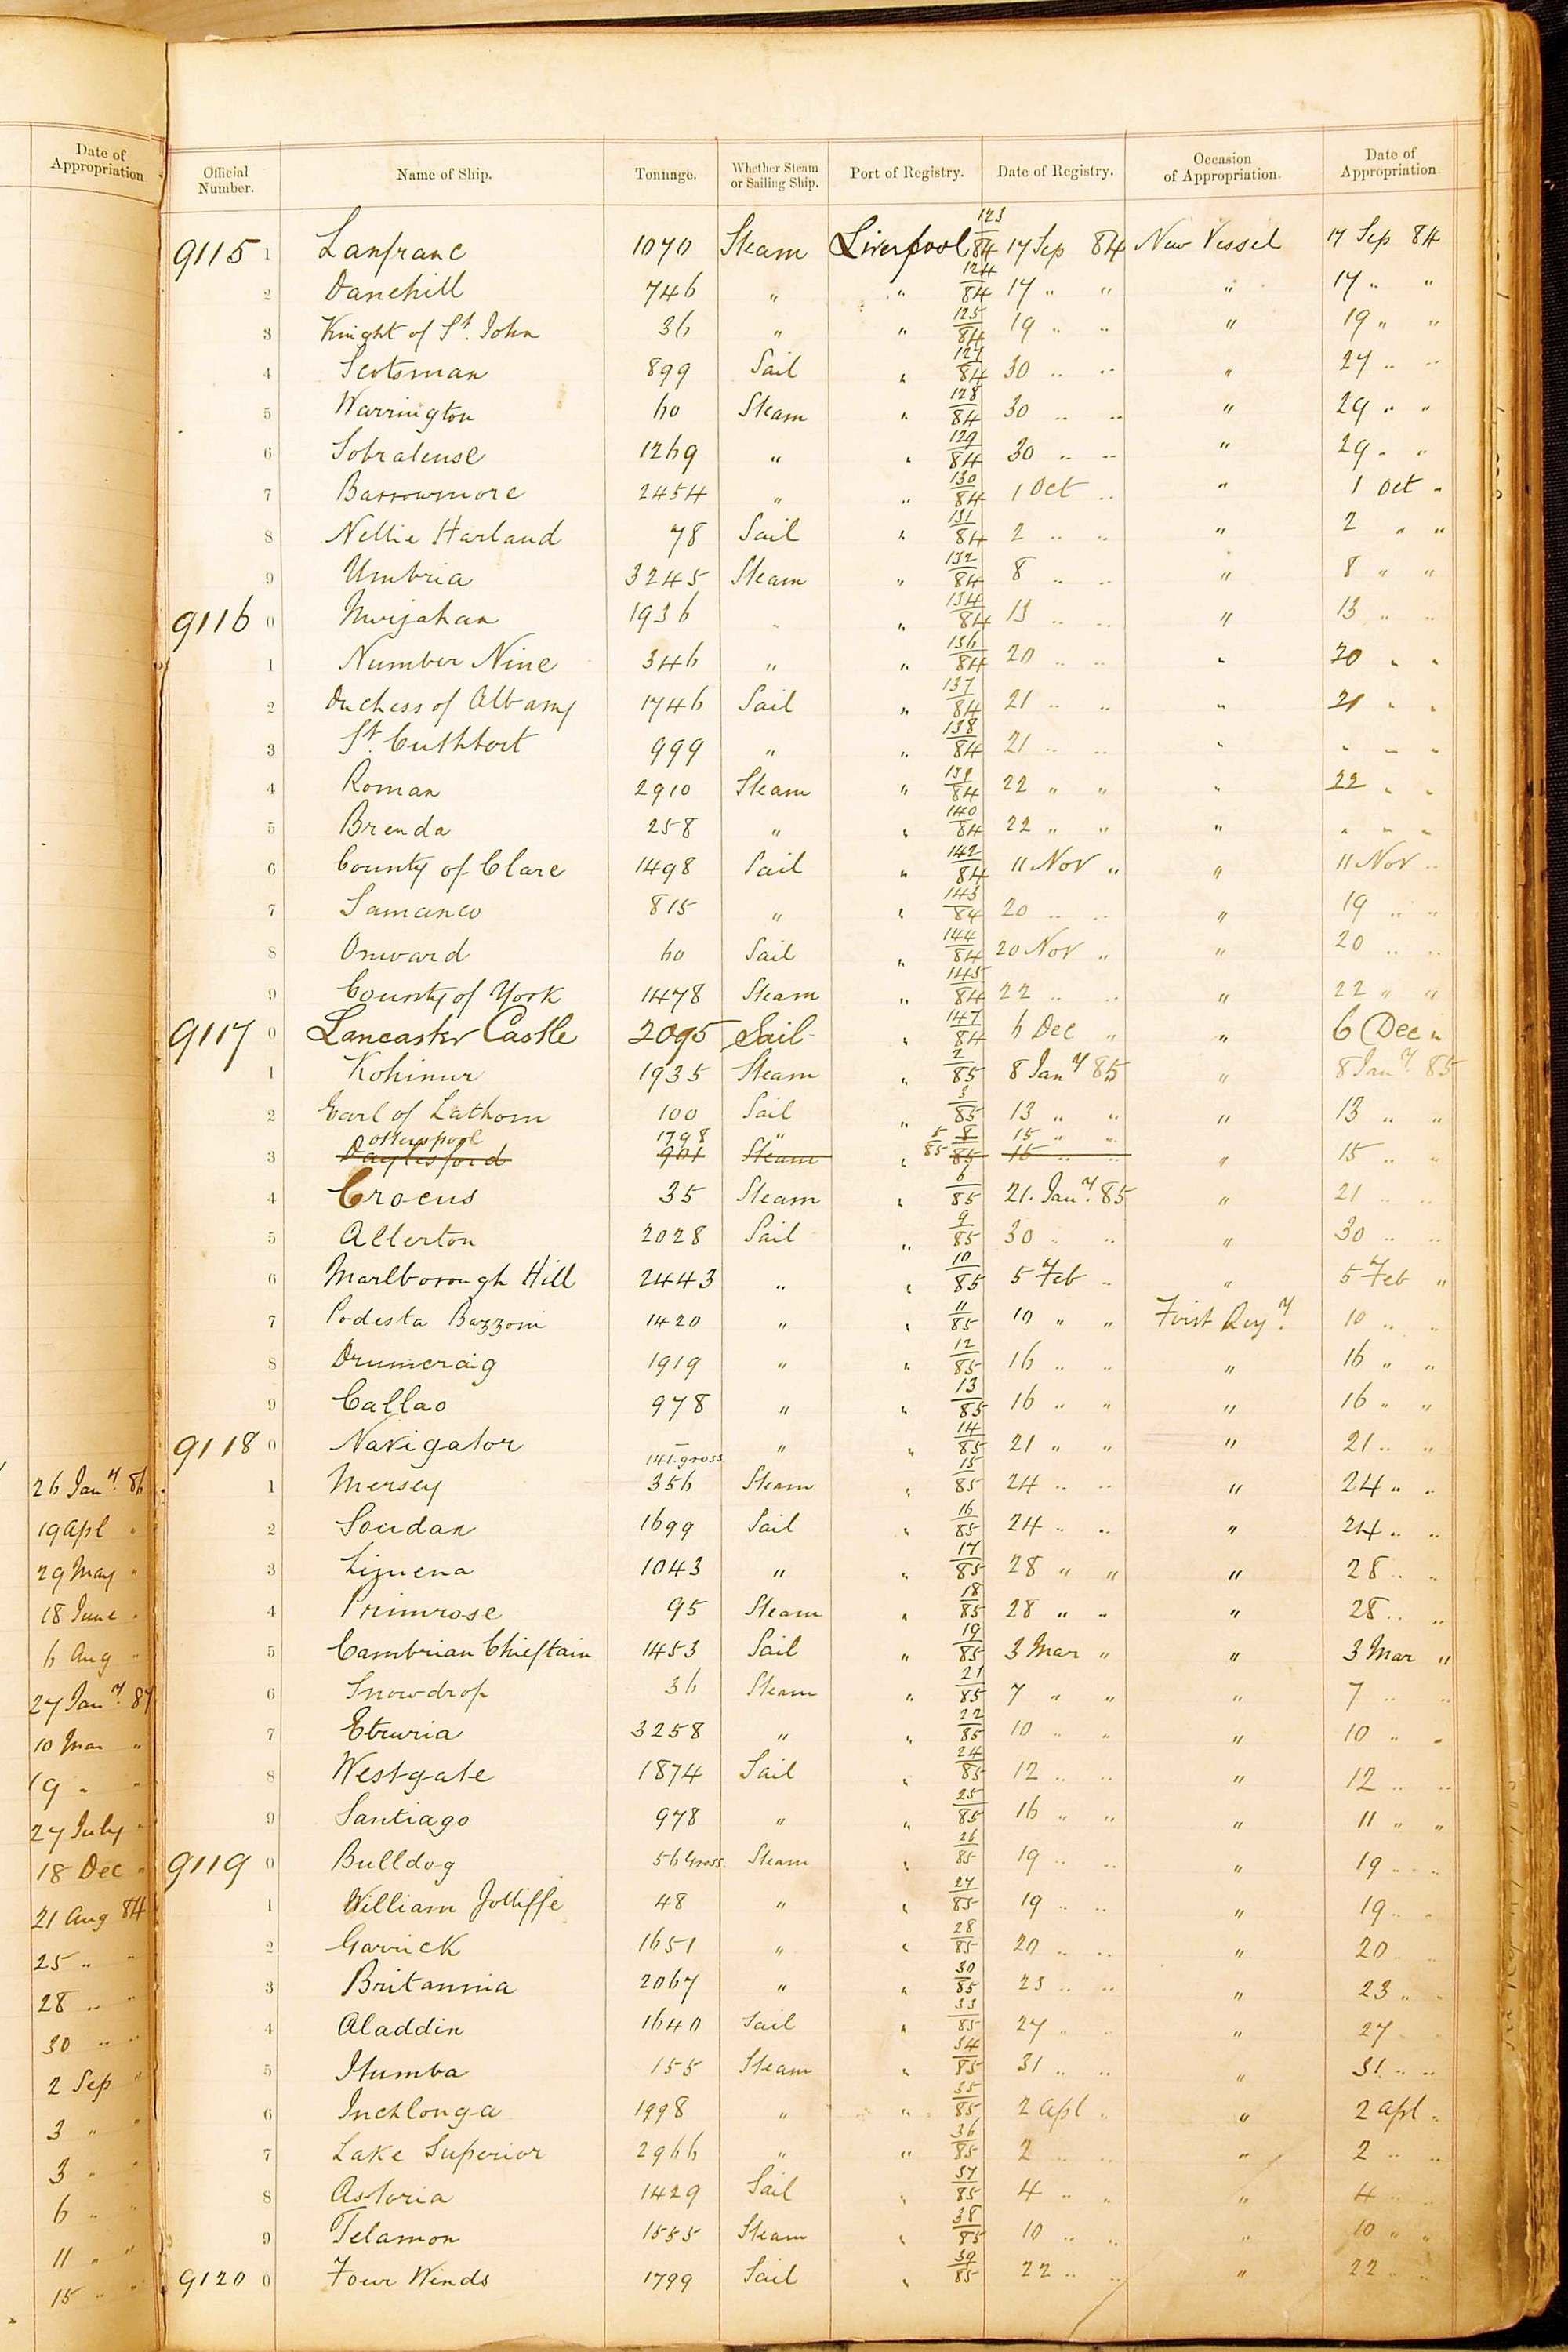 Date of Appropriation
Official Number. Name of Ship. Tonnage. Whether Steam or Sailing Ship. Port of Registry. Date of Registry. Occasion of Appropriation. Date of Appropriation
9115 1 Lanfranc 1070 Steam Liverpool 123/84 17 Sep 84 New Vessel 17 Sep 84
2 Danehill 746 " " 124/84 17 " " " 17 " "
3 Knight of St. John 36 " " 125/84 19 " " " 19 " "
4 Scotsman 899 Sail " 127/84 30 " " " 27 " "
5 Warrington 60 Steam " 128/84 30 " " " 29 " "
6 Sobralense 1269 " " 129/84 30 " " " 29 " "
7 Barrowmore 2454 " " 130/84 1 Oct " " 1 Oct "
8 Nellie Harland 78 Sail " 131/84 2 " " " 2 " "
9 Umbria 3245 Steam " 132/84 8 " " " 8 " "
9116 0 Nurjahan 1936 " " 134/84 13 " " " 13 " "
1 Number Nine 346 " " 136/84 20 " " " 20 " "
2 Duchess of Albany 1746 Sail " 137/84 21 " " " 21 " "
3 St. Cuthbert 999 " " 138/84 21 " " " " " "
4 Roman 2910 Steam " 139/84 22 " " " 22 " "
5 Brenda 258 " " 140/84 22 " " " " " "
6 County of Clare 1498 Sail " 142/84 11 Nov " " 11 Nov "
7 Samanco 815 " " 143/84 20 " " " 19 " "
8 Onward 60 Sail " 144/84 20 Nov " " 20 " "
9 County of York 1478 Steam " 145/84 22 " " " 22 " "
9117 0 Lancaster Castle 2095 Sail " 147/84 6 Dec " " 6 Dec "
1 Kohinur 1935 Steam " 2/85 8 Jany 85 " 8 Jany. 85
2 Earl of Lathom 100 Sail " 3/85 13 " " " 13 " "
Otterspool 1798 " 5/85 15 " "
3 Daylesford 901 Steam " 8/85 15 " " " 15 " "
4 Crocus 35 Steam " 6/85 21. Jany. 85 " 21 " "
5 Allerton 2028 Sail " 9/85 30 " " " 30 " "
6 Marlborough Hill 2443 " " 10/85 5 Feb " " 5 Feb "
7 Podesta Bazzoni 1420 " " 11/85 10 " " First Regy. 10 " "
8 Drumcraig 1919 " " 12/85 16 " " " 16 " "
9 Callao 978 " " 13/85 16 " " " 16 " "
9118 0 Navigator — 141.gross " " 14/85 21 " " " 21 " "
1 Mersey 356 Steam " 15/85 24 " " " 24 " "
2 Soudan 1699 Sail " 16/85 24 " " " 24 " "
3 Liguena 1043 " " 17/85 28 " " " 28 " "
4 Primrose 95 Steam " 18/85 28 " " " 28 " "
5 Cambrian Chieftain 1453 Sail " 19/85 3 Mar " " 3 Mar "
6 Snowdrop 36 Steam " 21/85 7 " " " 7 " "
7 Etruria 3258 " " 22/85 10 " " " 10 " "
8 Westgate 1874 Sail " 24/85 12 " " " 12 " "
9 Santiago 978 " " 25/85 16 " " " 11 " "
9119 0 Bulldog 56 Gross. Steam " 26/85 19 " " " 19 " "
1 William Jolliffe 48 " " 27/85 19 " " " 19 " "
2 Garrick 1651 " " 28/85 20 " " " 20 " "
3 Britannia 2067 " " 30/85 23 " " " 23 " "
4 Aladdin 1640 Sail " 33/85 27 " " " 27 " "
5 Itumba 155 Steam " 34/85 31 " " " 31 " "
6 Inchlonga 1998 " " 35/85 2 Apl " " 2 Apl "
7 Lake Superior 2966 " " 36/85 2 " " " 2 " "
8 Astoria 1429 Sail " 37/85 4 " " " 4 " "
9 Telamon 1555 Steam " 38/85 10 " " " 10 " "
9120 0 Four Winds 1799 Sail " 39/85 22 " " " 22 " "
26 Jany. 86
19 Apl "
29 May "
18 June "
6 Aug "
27 Jany. 87
10 Mar "
19 " "
27 July "
18 Dec "
21 Aug 84
25 " "
28 " "
30 " "
2 Sep "
3 " "
3 " "
6 " "
11 " "
15 " "